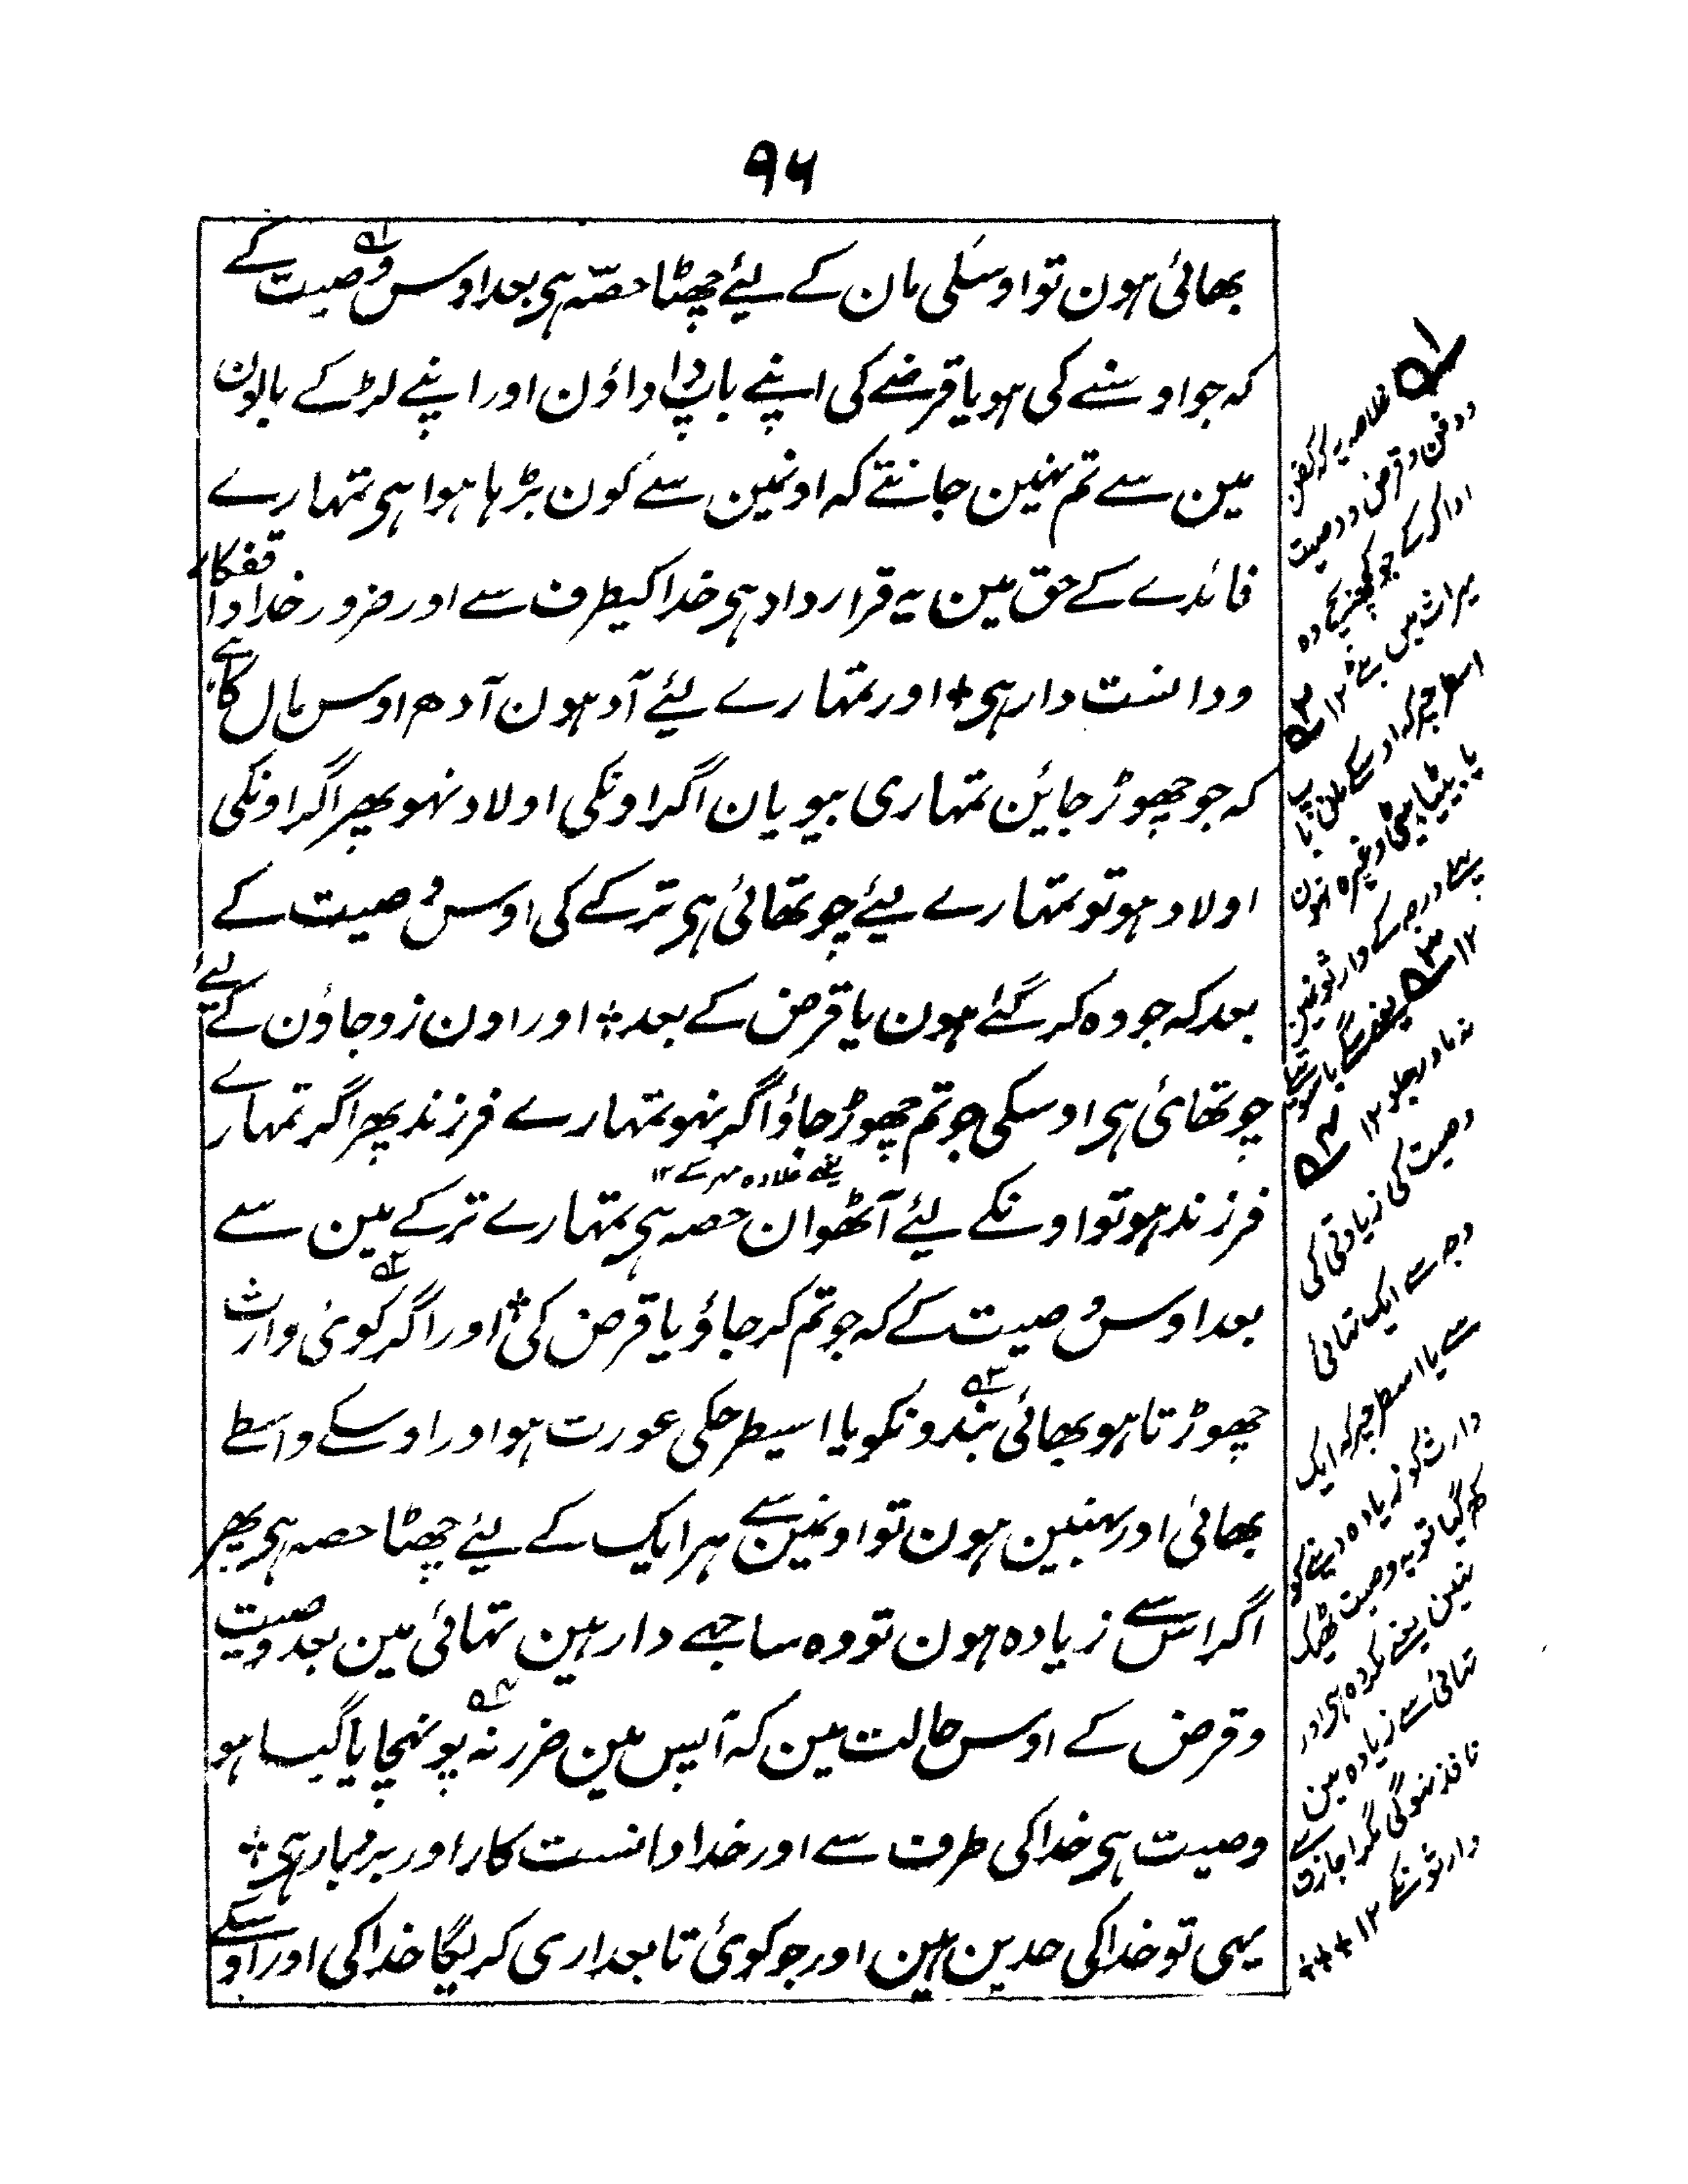 ۹۶
بھائی ہون تو اوسکی مان کے لیئے چھٹا حصّہ ہی بعد اوس وصیت کے
کہ جو اوسنے کی ہو یا قرضے کی اپنے باپ داداؤن اور اپنے لڑکے بالون
مین سے تم نہین جانتے کہ اونمین سے کون بڑہا ہوا ہی تمہارے
فائدے کے حق مین یہ قرارداد ہی خدا کیطرف سے اور ضرور خدا واقفکار
ودانست دار ہی + اور تمہارے لیئے آدہون آدھ اوس مال کا ہے
کہ جو چھوڑ جائین تمہاری بیویان اگر اونکی اولاد نہو پھر اگر اونکی
اولاد ہو تو تمہارے لیئے چوتھائی ہی ترکے کی اوس وصیت کے
بعد کہ جو وہ کر گئے ہون یا قرض کے بعد + اور اون زوجاؤن کے لیئے
چوتھائی ہی اوسکی جو تم چھوڑ جاؤ اگر نہو تمہارے فرزند پھر اگر تمہارے
یعنے علاوہ مہر کے ۱۲
فرزند ہو تو اونکے لیئے آٹھوان حصہ ہی تمہارے ترکے مین سے
بعد اوس وصیت کے کہ جو تم کر جاؤ یا قرض کی + اور اگر کوئی وارث
چھوڑتا ہو بھائی بندونکو یا اسیطرحکی عورت ہو اور اوسکے واسطے
بھائی اور بہنین ہون تو اونمین سے ہر ایک کے لیئے چھٹا حصہ ہی پھر
اگر اس سے زیادہ ہون تو وہ ساجھے دار ہین تہائی مین بعد وصیت
وقرض کے اوس حالت مین کہ آپس مین ضرر نہ پونہچایا گیا ہو
وصیت ہی خدا کی طرف سے اور خدا دانست کار اور بردبار ہی +
یہی تو خدا کی حدین ہین اور جو کوئی تابعداری کریگا خدا کی اور اوسکے
۱ خلاصہ یہ کہ کفن
ودفن وقرض ووصیت
ادا کرکے جو کچھ بچے وہ
میراث مین ہے ۱۲ ۲
اسطرح کہ اوسکے مان باپ
یا بیٹا بیٹی وغیرہ نہون
پہلے درجہ کے وارثونمین
۱۲ ۳
نہ مادر بجلو ۱۲ ۴
وصیت کی زیادتی کی
وجہ سے ایک تہائی
سے یا اسطرح کہ ایک
وارث کو زیادہ دینے کو
کہ گیا تو یہ وصیت ٹھیک
نہین یعنے مکروہ ہی اور
تہائی سے زیادہ مین
نافذ نہوگی مگر اجازت سے
وارثونکے ۱۲ +++